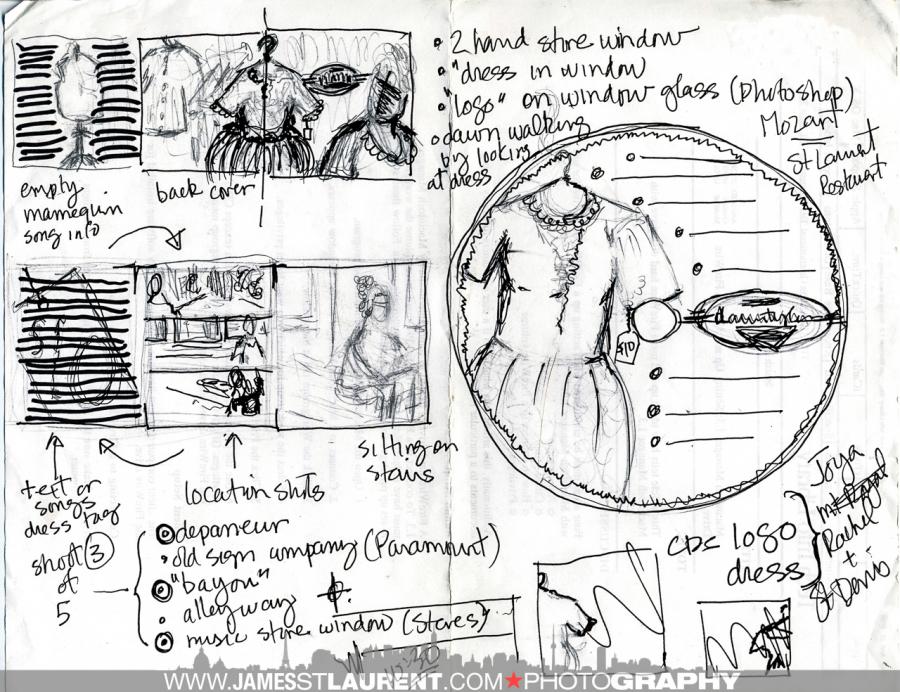 • 2 hand store window
• "dress in window
• "logo" on window glass (photoshop)
• dawn walking
by looking
at dress
Mozart
St Laurent
Restaurant
empty
mannequin
song info
back cover
$10
text or
songs
dress tag
shoot 3
of
5
location shots
sitting on
stairs
• depanneur
• old sign company (Paramount)
• "bayou"
• alleyway
• music store window (Steves)
CD = logo
dress
Joya
Rachel
+
St Denis
12:30
WWW.JAMESSTLAURENT.COM★PHOTOGRAPHY